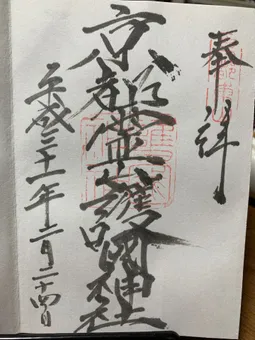 奉拝
京都霊山護国神社
平成三十一年二月二十四日